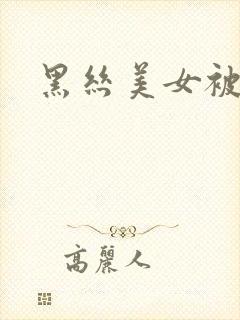 黑絲美女被
高麗人